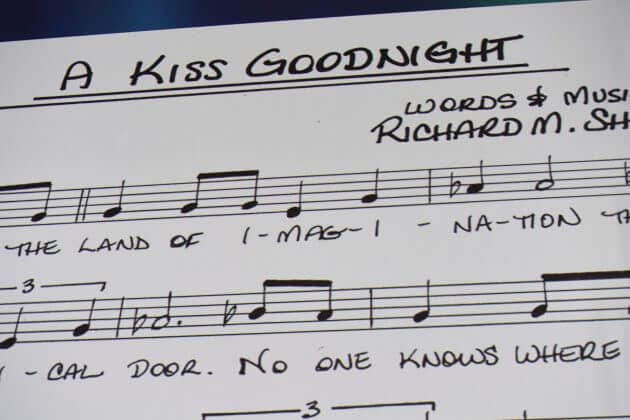 A KISS GOODNIGHT
WORDS & MUSI
RICHARD M. SH
THE LAND OF I-MAG-I - NA-TION TH
3
I - CAL DOOR. NO ONE KNOWS WHERE
3